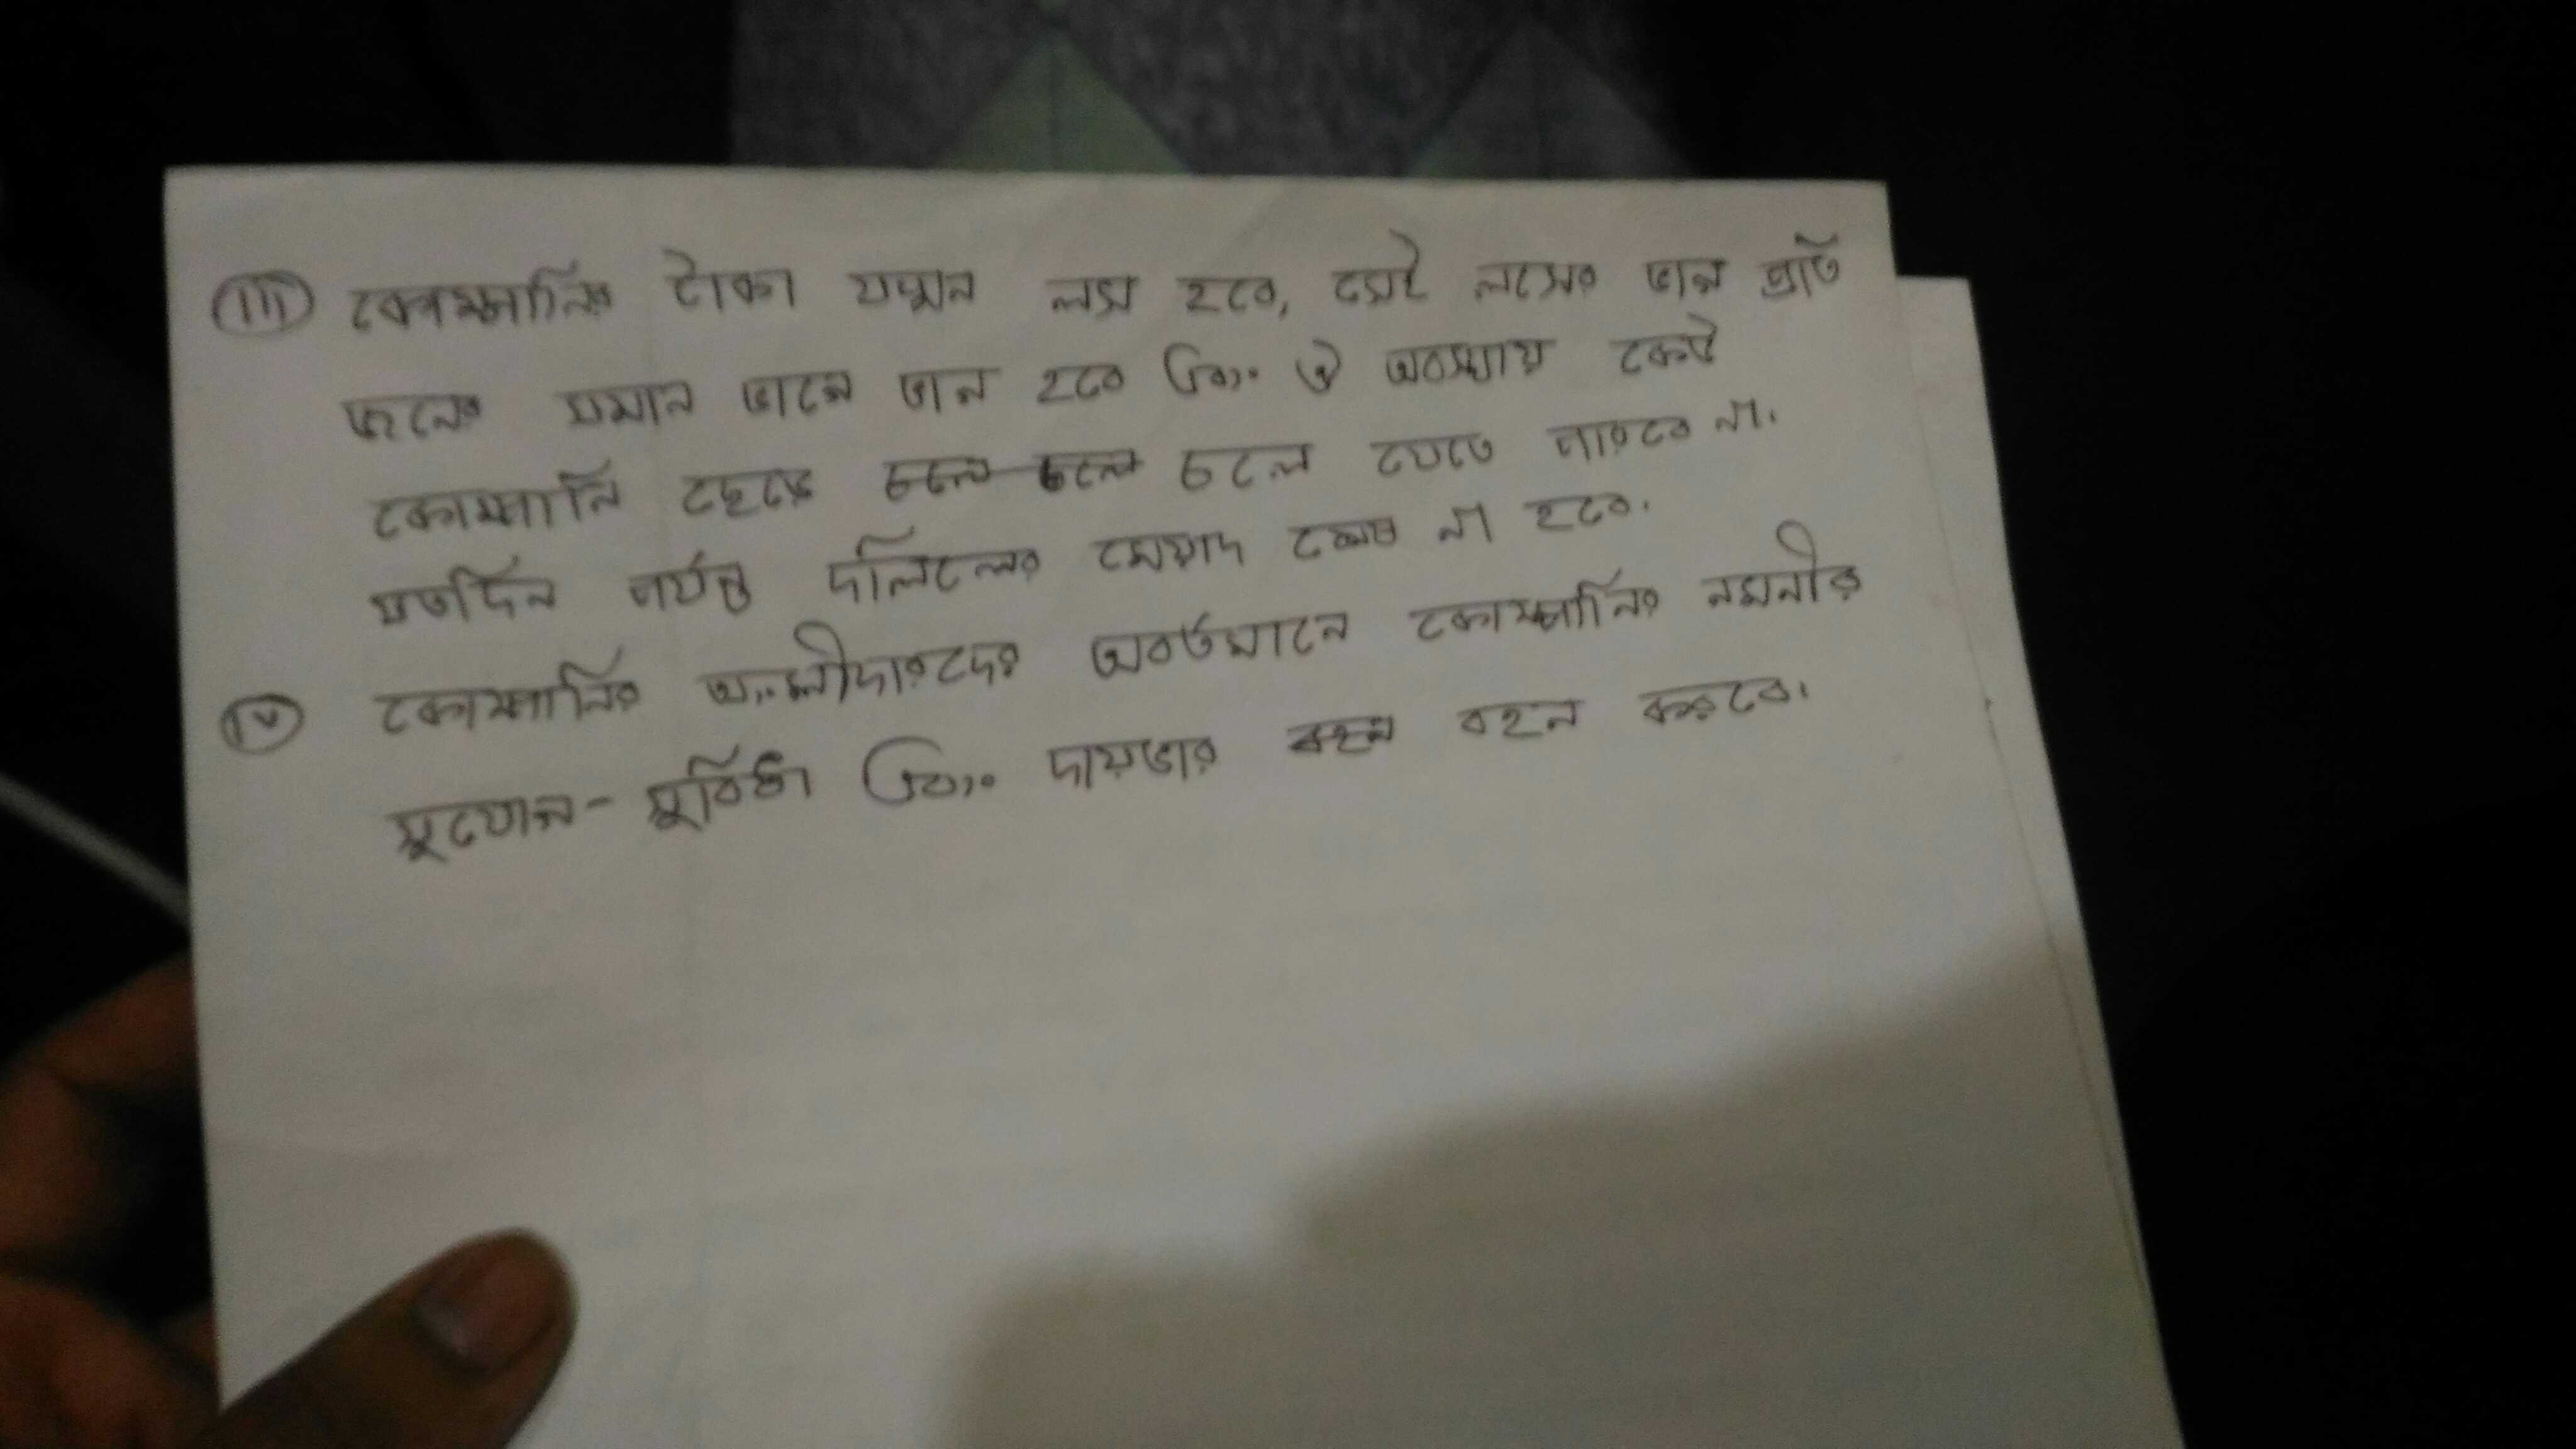 (iii) কোম্পানির টাকা যখন লস হবে, সেই লসের ভাগ প্রতি
জনের সমান ভাগে ভাগ হবে এবং ঐ অবস্থায় কেউ
কোম্পানি ছেড়ে চলে চলে চলে যেতে পারবে না.
যতদিন পর্যন্ত দলিলের মেয়াদ শেষ না হবে.
(iv) কোম্পানির অংশীদারদের অবর্তমানে কোম্পানির নমনীর
সুযোগ-সুবিধা এবং দায়ভার বহন বহন করবে.